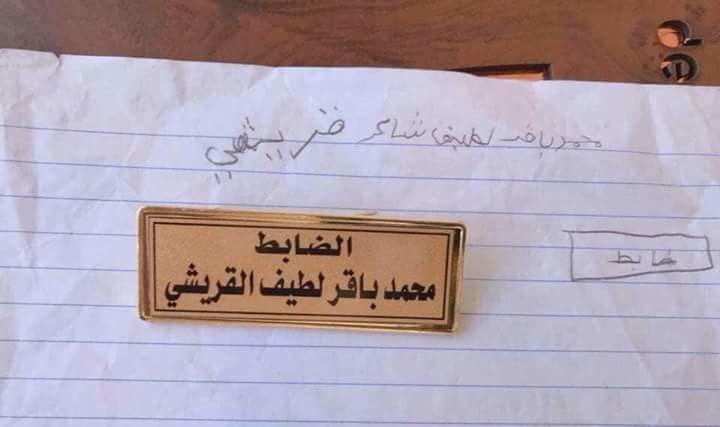 محمد باقر لطيف شاكر قريشي
ضابط
الضابط
محمد باقر لطيف القريشي